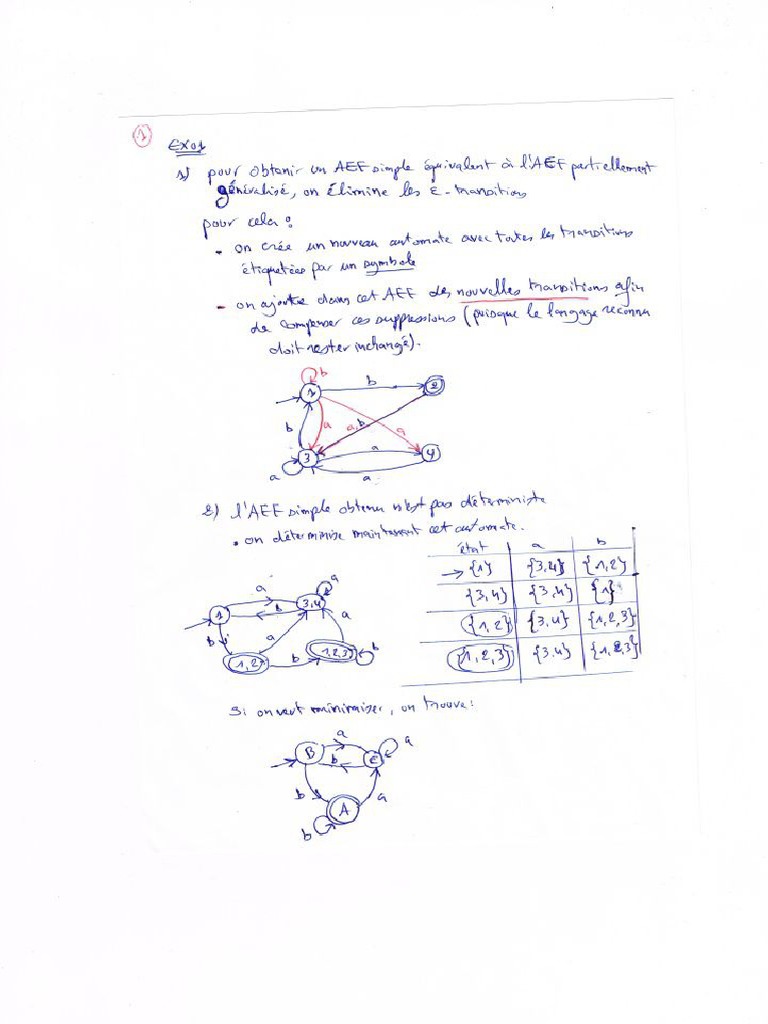 1
EX01
1) pour obtenir un AEF simple équivalent à l'AEF partiellement
généralisé, on élimine les ε-transitions
pour cela :
- on crée un nouveau automate avec toutes les transitions
étiquetées par un symbole
- on ajoute dans cet AEF des nouvelles transitions afin
de compenser ces suppressions (puisque le langage reconnu
doit rester inchangé).
b
1 b 2
b a a,b a
3 a 4
a a
2) l'AEF simple obtenu n'est pas déterministe
• on déterminise maintenant cet automate.
état a b
→ {1} {3,4} {1,2}
{3,4} {3,4} {1}
{1,2} {3,4} {1,2,3}
{1,2,3} {3,4} {1,2,3}
a a
1 b 3,4
b a a
1,2 b 1,2,3 b
Si on veut minimiser, on trouve :
a a
B b C
b A a
b